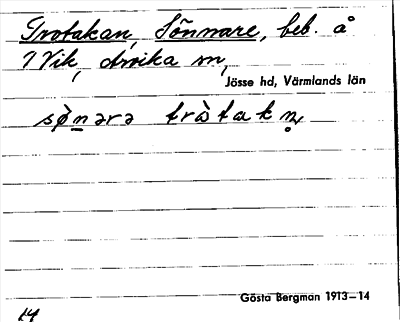 Trotakan, Sönnare, beb. å
1 Vik, Arvika sn,
Jösse hd, Värmlands län
sø̀nərə tràtakn̥
Gösta Bergman 1913–14